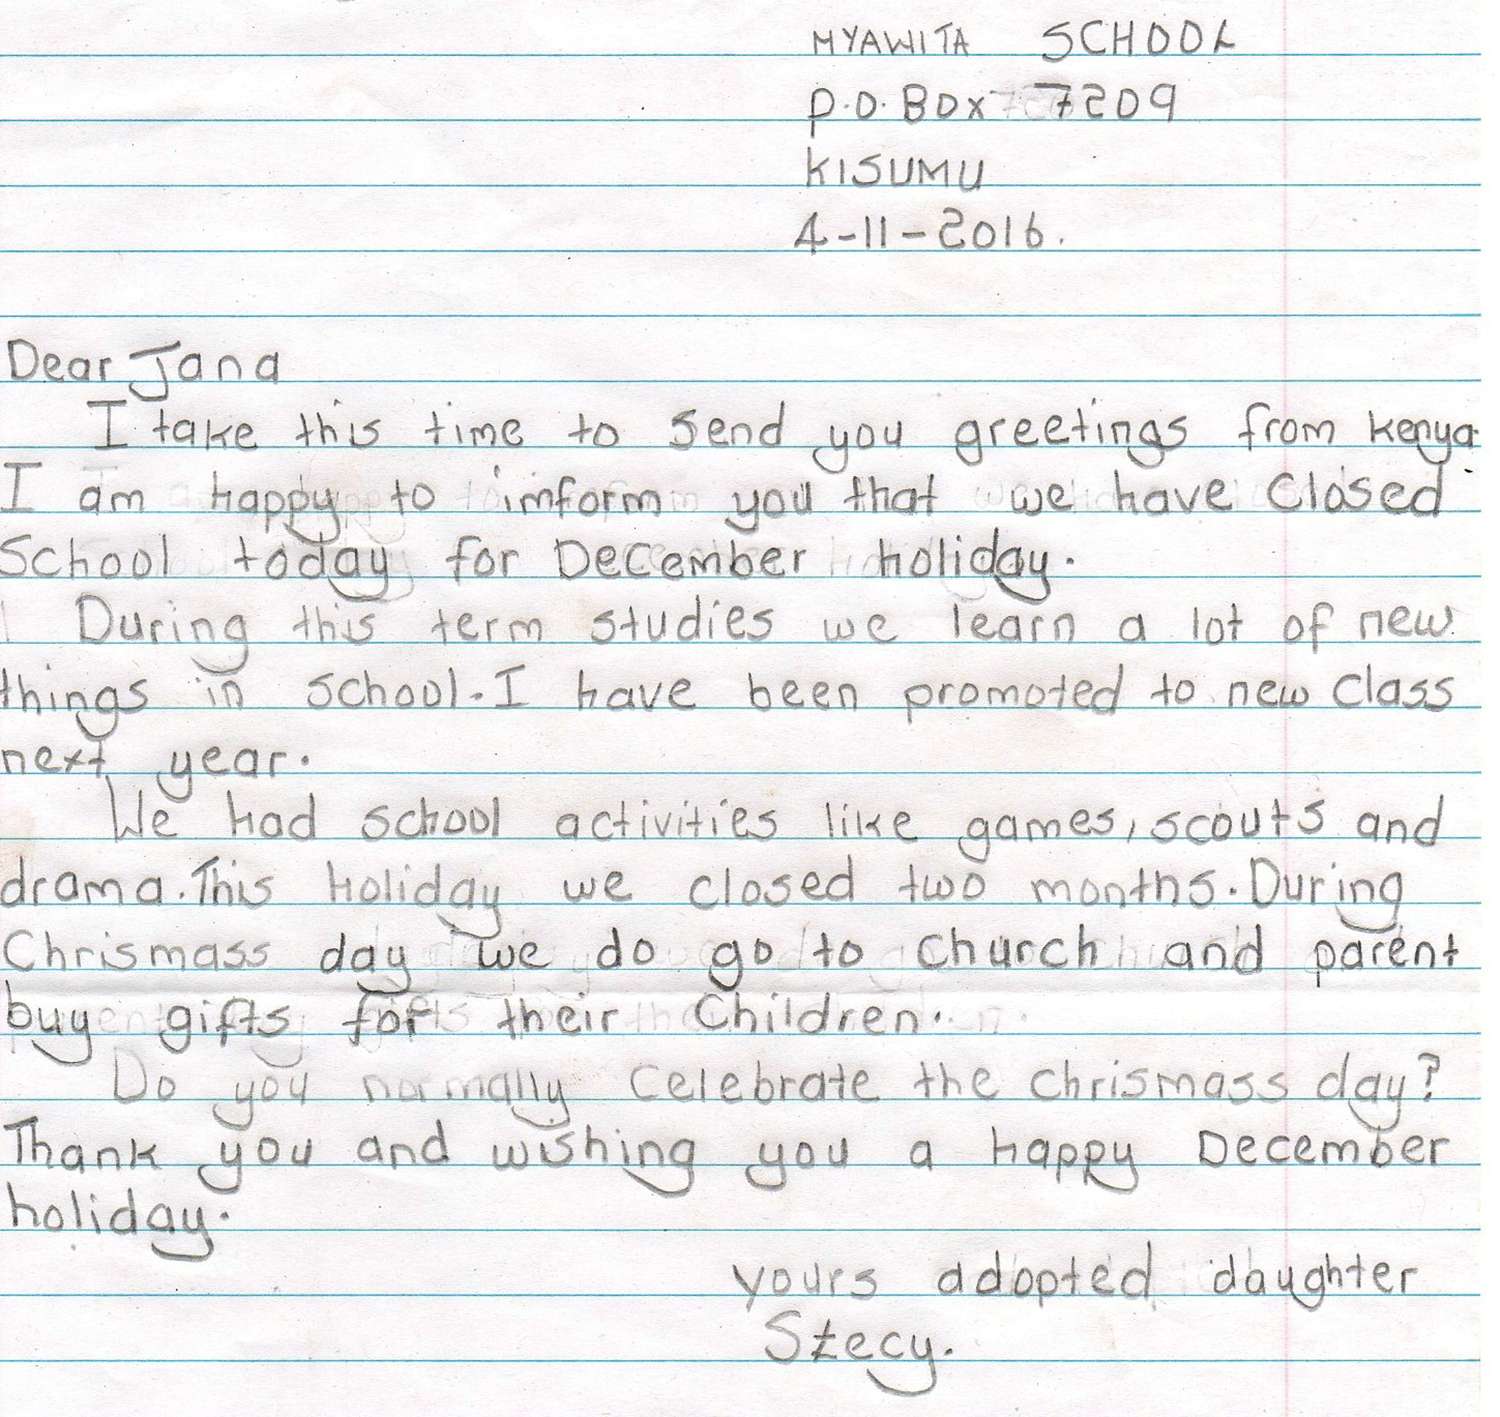 MYAWITA SCHOOL
P.O. Box 7209
KISUMU
4-11-2016.
Dear Jana
I take this time to send you greetings from kenya.
I am happy to imform you that we have Closed
School today for December holiday.
During this term studies we learn a lot of new
things in school. I have been promoted to new class
next year.
We had school activities like games, scouts and
drama. This holiday we closed two months. During
Chrismass day we do go to church and parent
buy gifts for their Children.
Do you normally celebrate the chrismass day?
Thank you and wishing you a happy December
holiday.
yours adopted daughter
Stecy.